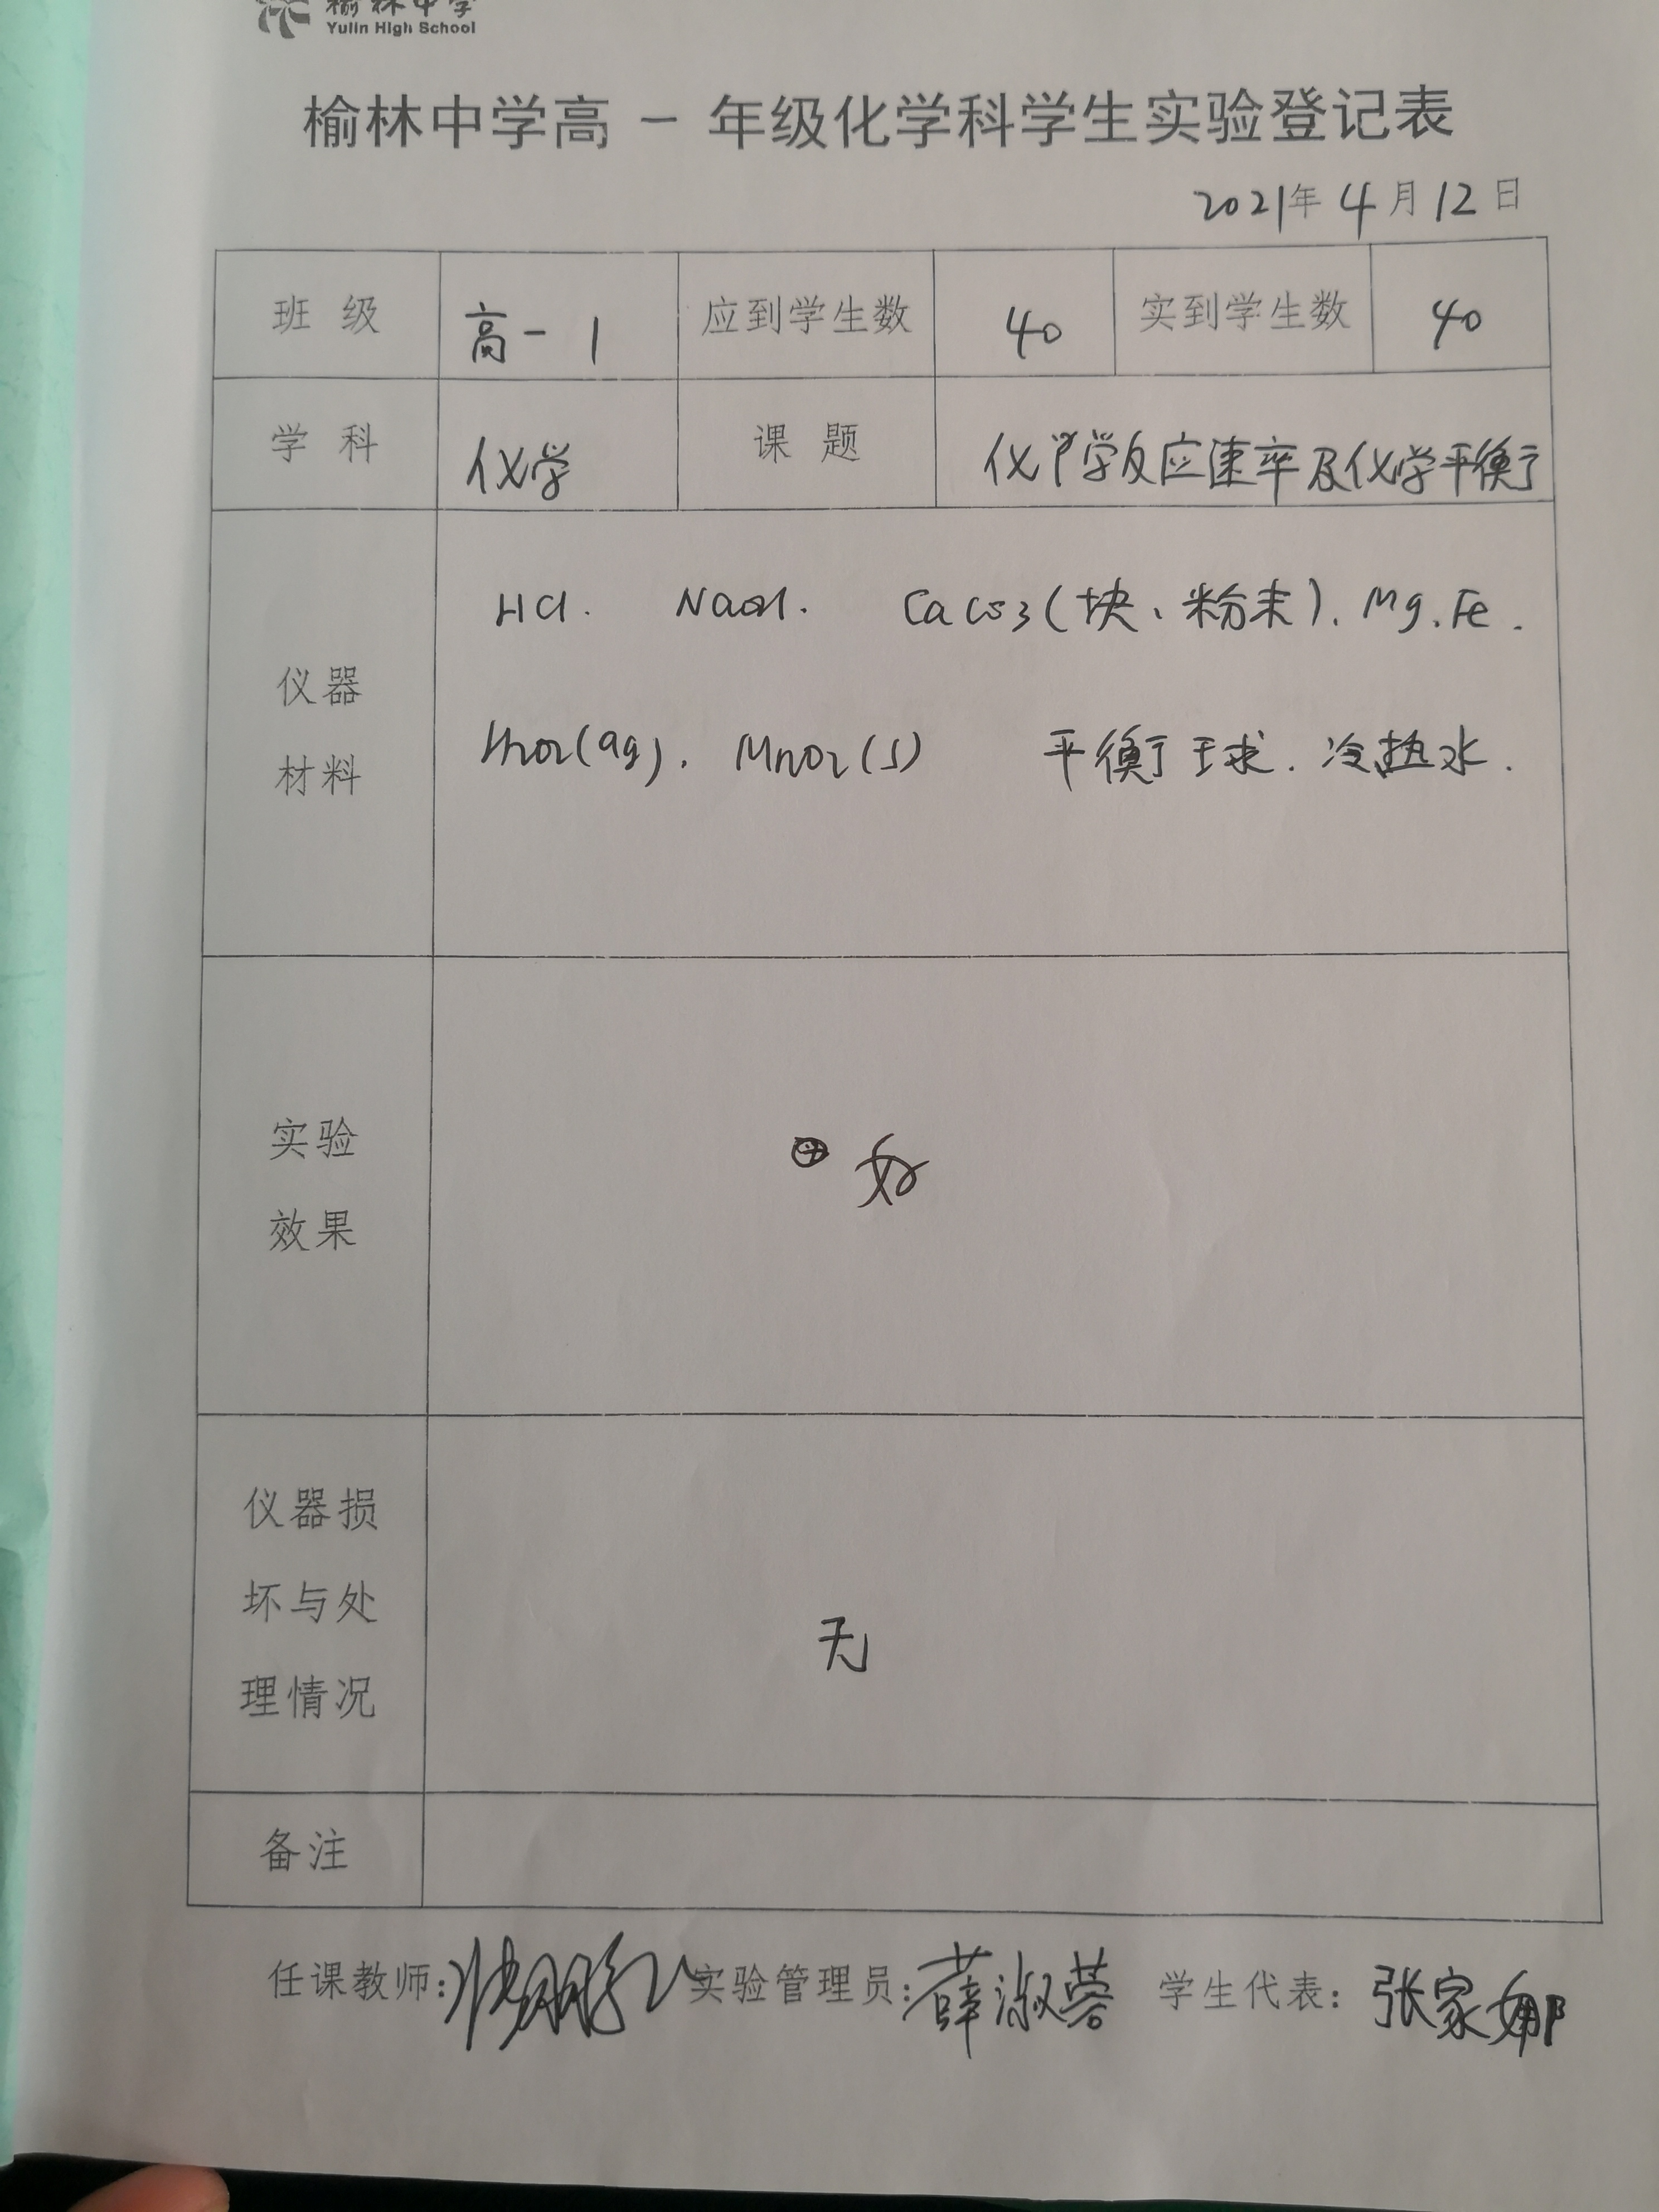 榆林中学
Yulin High School
榆林中学高一年级化学科学生实验登记表
2021年4月12日
班级 高一1 应到学生数 40 实到学生数 40
学科 化学 课题 化学反应速率及化学平衡
仪器材料
HCl. NaOH. CaCO3(块、粉末). Mg. Fe.
H2O2(aq). MnO2(s) 平衡球. 冷热水.
实验效果 好
仪器损坏与处理情况 无
备注
任课教师: 实验管理员: 薛淑蓉 学生代表: 张家娜